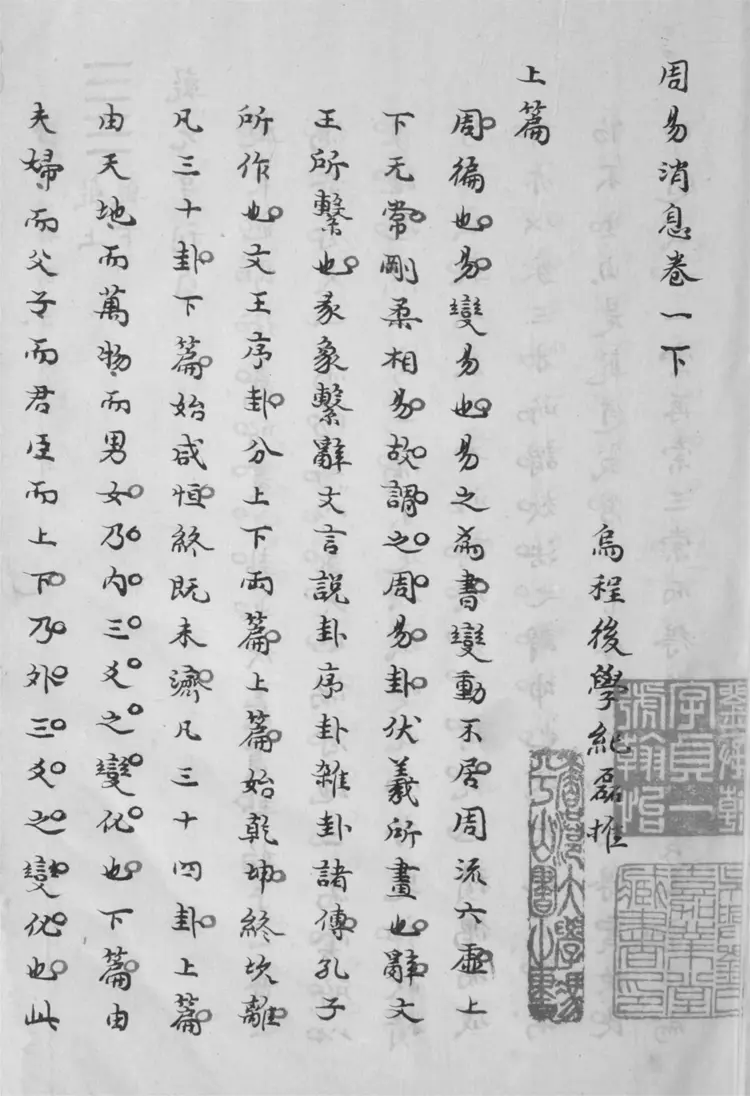 周易消息卷一下
烏程後學紀磊撰
上篇
周徧也易變易也易之爲書變動不居周流六虛上
下无常剛柔相易故謂之周易卦伏羲所畫也辭文
王所繫也彖象繫辭文言說卦序卦雜卦諸傳孔子
所作也文王序卦分上下兩篇上篇始乾坤終坎離
凡三十卦下篇始咸恒終既未濟凡三十四卦上篇
由天地而萬物而男女乃內三爻之變化也下篇由
夫婦而父子而君臣而上下乃外三爻之變化也此
字貞一
號翰怡
嘉業堂
藏書印